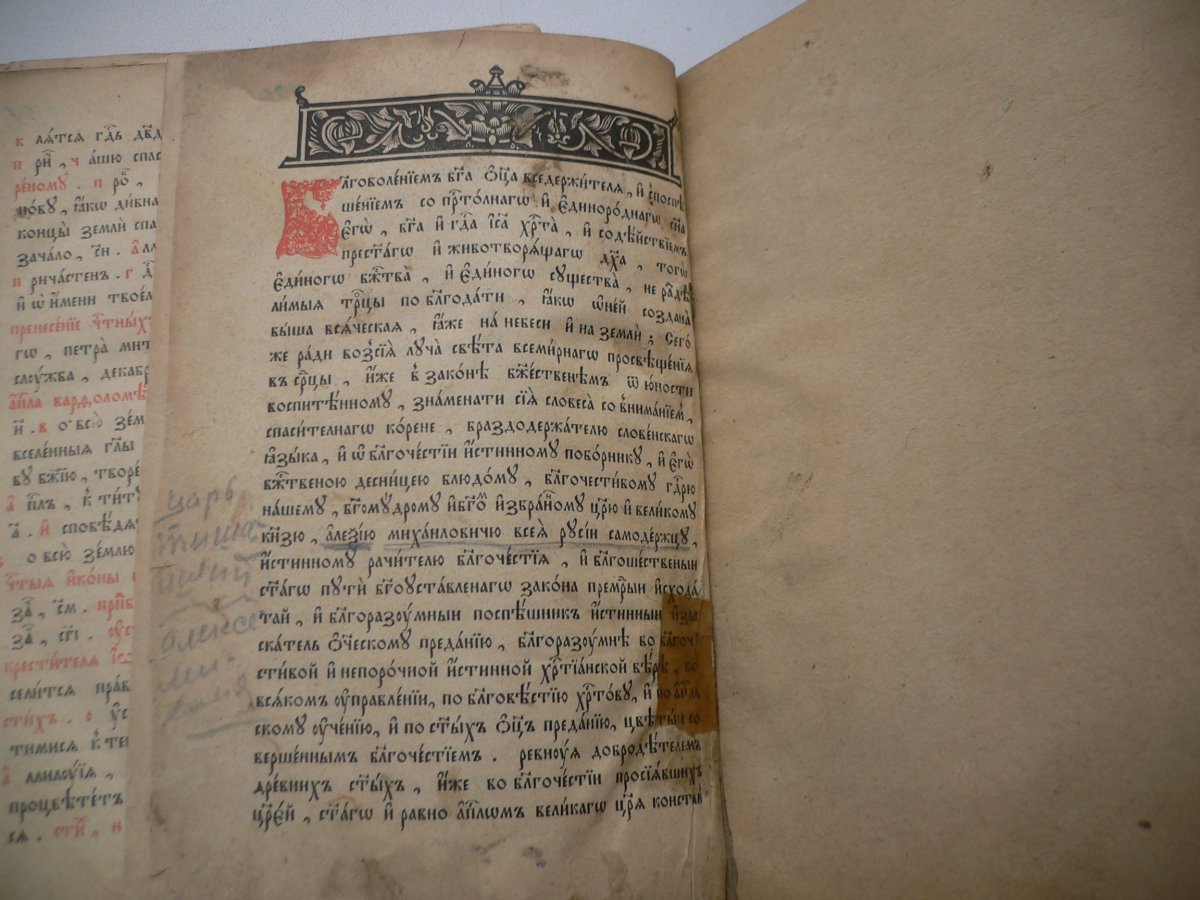 к лѧ́тсѧ гдⷭ҇ь дв҃д
п рїй , ч ашю спас
ре́ному . п роⷪ ,
мо́вѹ , ꙗ҆́кѡ ди́вна
концы̀ землѝ спа
зача́ло , ѕ҃н . а҆лл
п рича́стен . г дⷭ҇
и҆ ѡ҆ и҆́мени твое́м
пренесе́нїе чⷭ҇тны́хъ
гѡ , петра̀ мит
слꙋ́жба , дека́бр
а҆пⷭ҇ла варѳоломѣ
и҃ . в о̀ всю̀ зе́м
вселе́нныѧ гл҃ы
вꙋ бж҃їю , творе́
а҆ пⷭ҇лъ , к̾ ти́тꙋ
и҆ сповѣ́дѧ
о всю̀ зе́млю
чⷭ҇тыѧ и҆ко́ны
крести́телѧ і҆ѡ
сели́тсѧ пра́в
сти́хъ . о
ти́мисѧ к̾ те
а҆ лилꙋ́їѧ ,
процвѣте́тъ
сѧ . сти́х , и
Бл҃говоле́нїемъ бг҃а ѻ҆ц҃а вседержи́телѧ , и҆ споспѣ
ше́нїемъ со прⷭ҇то́лнагѡ и҆ є҆диноро́днагѡ сн҃а
є҆гѡ̀ , бг҃а и҆ гдⷭ҇а і҆и҃са хрⷭ҇та̀ , и҆ содѣ́йствїемъ
престⷭ҇а́гѡ и҆ животворѧ́щагѡ дх҃а , того̀
є҆ди́ногѡ бжⷭ҇тва̀ , и҆ є҆ди́ногѡ сꙋщества̀ , не раздѣ
ли́мыѧ трⷪ҇цы по блг҃ода́ти , ꙗ҆́кѡ ѿне́й создана̀
бы́ша всѧ́ческаѧ , ꙗ҆́же на́ небеси и҆ на землѝ ; Сего́
же ра́ди возсїѧ̀ лꙋча̀ свѣ́та всеми́рнагѡ просвѣще́нїѧ
въ срⷣцы , и҆́же в̾ зако́нѣ бжⷭ҇ственѣмъ ѿ ю҆́ности
воспитѣ́нномꙋ , зна́менати сїѧ̀ словеса̀ со внима́нїем̾ ,
спаси́телнагѡ ко́рене , браздодержа́телю слове́нскагѡ
ꙗ҆зы́ка , и҆ ѡ҆ блг҃оче́стїи и҆́стинномꙋ побо́рникꙋ , и҆ є҆гѡ̀
бжⷭ҇твеною десни́цею блюдо́мꙋ , блг҃очести́вомꙋ гдⷭ҇рю
на́шемꙋ , бг҃омꙋ́дромꙋ и҆бг҃оⷨ и҆збра́нномꙋ цр҃ю̀ и҆ вели́комꙋ
кнѧ҃зю , а҆ле́ѯїю миха́иловичю всеѧ̀ рꙋсі́и самоде́ржцꙋ ,
и҆́стинномꙋ рачи́телю блг҃оче́стїѧ , и҆ блг҃ошественыи
стⷭ҇а́гѡ пꙋтѝ бг҃оꙋста́вленагѡ зако́на премрⷣыи и҆схода́
тай , и҆ блг҃оразꙋ́мныи поспѣ́шникъ и҆́стинныи и҆зы
ска́тель ѻ҆ч҃ескомꙋ преда́нїю , блг҃оразꙋ́мнѣ во блг҃оче
сти́вой и҆ непоро́чной и҆́стинной хрⷭ҇тїа́нской вѣ́рѣ , во
всѧ́комъ ᲂу҆правле́нїи , по блг҃овѣ́стїю хрⷭ҇то́вꙋ , и҆ по а҆пⷭ҇ль
скомꙋ ᲂу҆че́нїю , и҆ по стⷭ҇ы́хъ ѻ҆ц҃ъ преда́нїю , цвѣты́й со
верше́ннымъ блг҃оче́стїемъ . ревнꙋ́ѧ добродѣ́телемъ
дре́внихъ стⷭ҇ы́хъ , и҆́же во блг҃оче́стїи просїѧ́вшихъ
цр҃е́й , стⷭ҇а́гѡ и҆ ра́вно а҆пⷭ҇лѡмъ вели́кагѡ цр҃ѧ̀ конста́н
царь
тиша
алексе